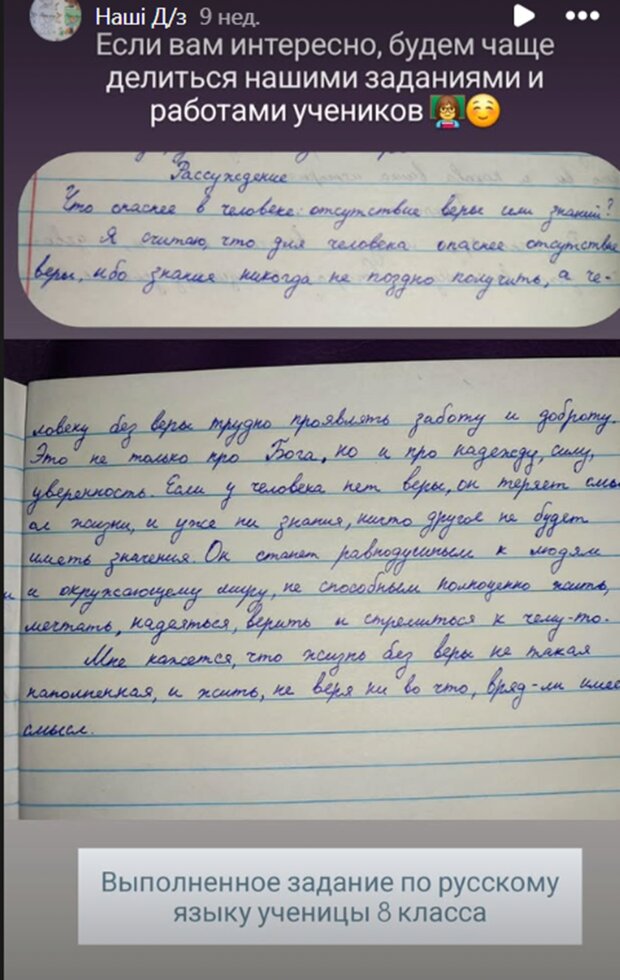 Наші Д/з 9 нед.
Если вам интересно, будем чаще
делиться нашими заданиями и
работами учеников
Рассуждение
Что опаснее в человеке: отсутствие веры или знаний?
Я считаю, что для человека опаснее отсутствие
веры, ибо знания никогда не поздно получить, а че-
ловеку без веры трудно проявлять заботу и доброту.
Это не только про Бога, но и про надежду, силу,
уверенность. Если у человека нет веры, он теряет смы
ал жизни, и уже ни знания, ничто другое не будет
иметь значения. Он станет равнодушным к людям
и окружающему миру, не способным полноценно жить,
мечтать, надеяться, верить и стремиться к чему-то.
Мне кажется, что жизнь без веры не такая
наполненная, и жить, не веря ни во что, вряд-ли имее
смысл.
Выполненное задание по русскому
языку ученицы 8 класса